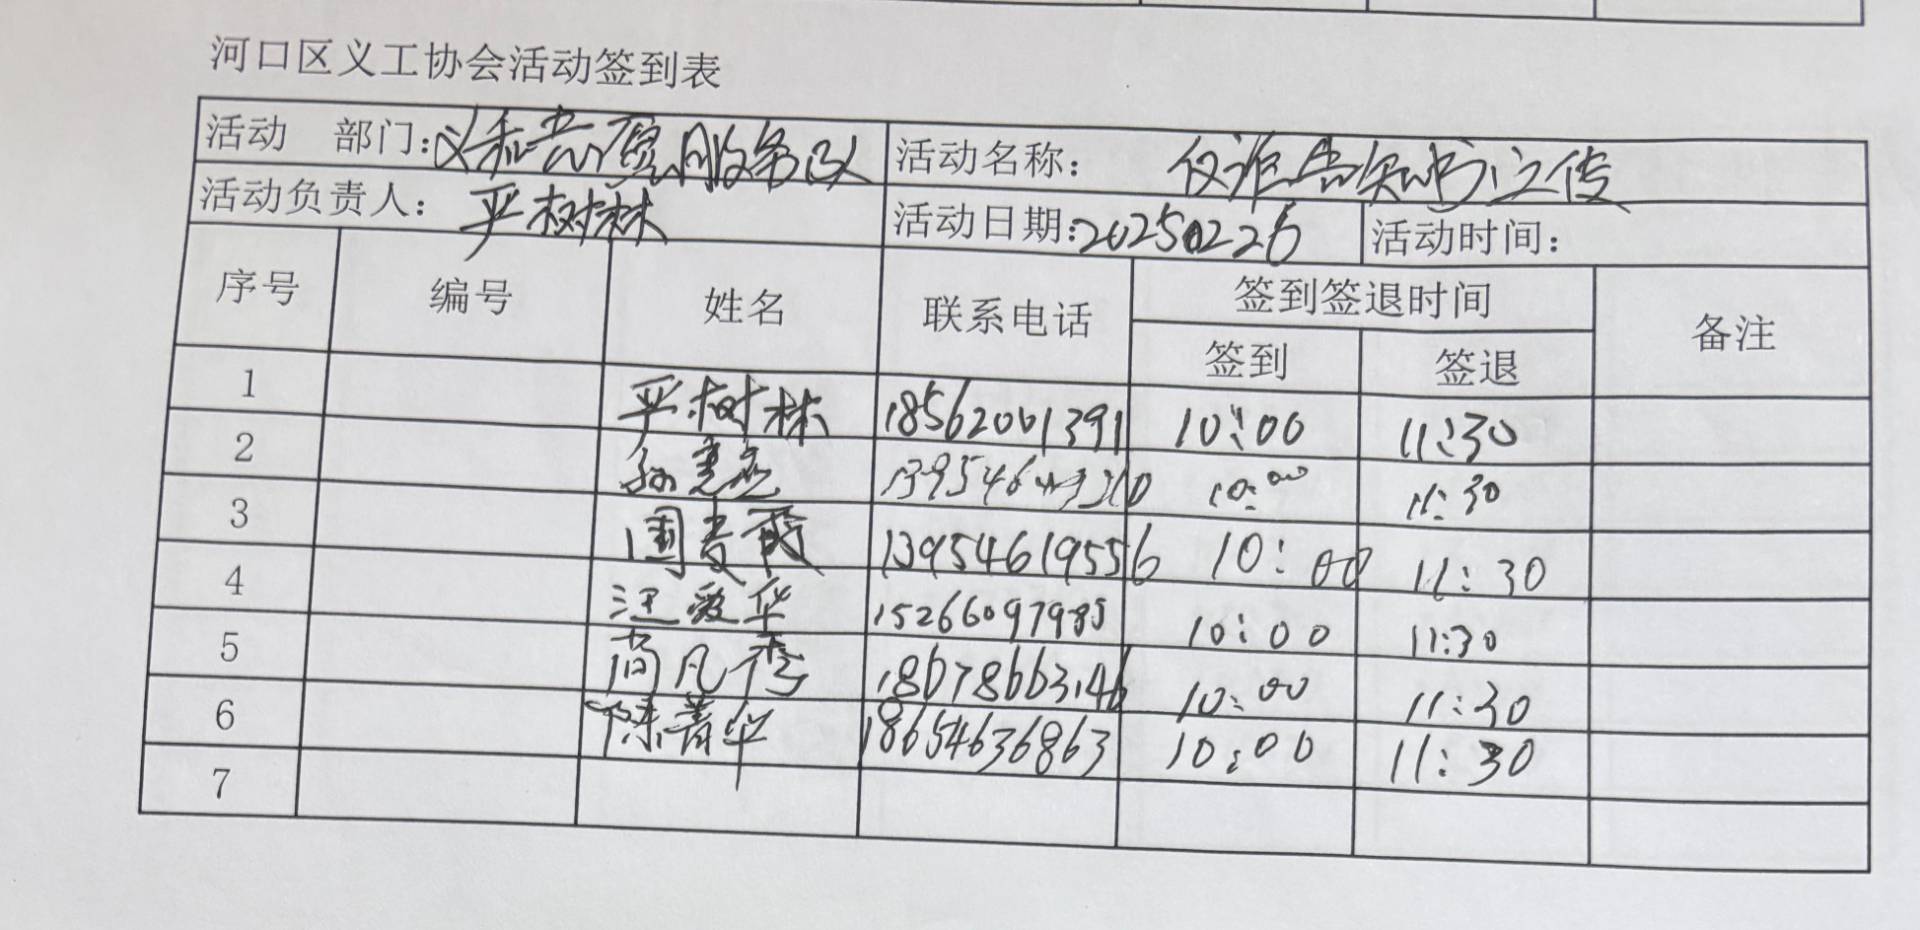 河口区义工协会活动签到表
活动 部门：义和志愿服务队 活动名称： 告知书宣传
活动负责人：严树林 活动日期：20250226 活动时间：
序号 编号 姓名 联系电话 签到签退时间 备注
签到 签退
1 严树林 18562001391 10:00 11:30
2 10:00 11:30
3 13954619556 10:00 11:30
4 汪爱华 15266097985 10:00 11:30
5 尚凡秀 18678663146 10:00 11:30
6 陈菁华 18654636863 10:00 11:30
7